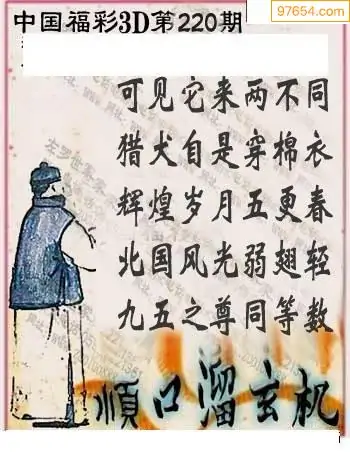 97654.com
中国福彩3D第220期
可见它来两不同
猎犬自是穿棉衣
辉煌岁月五更春
北国风光弱翅轻
九五之尊同等数
顺口溜玄机